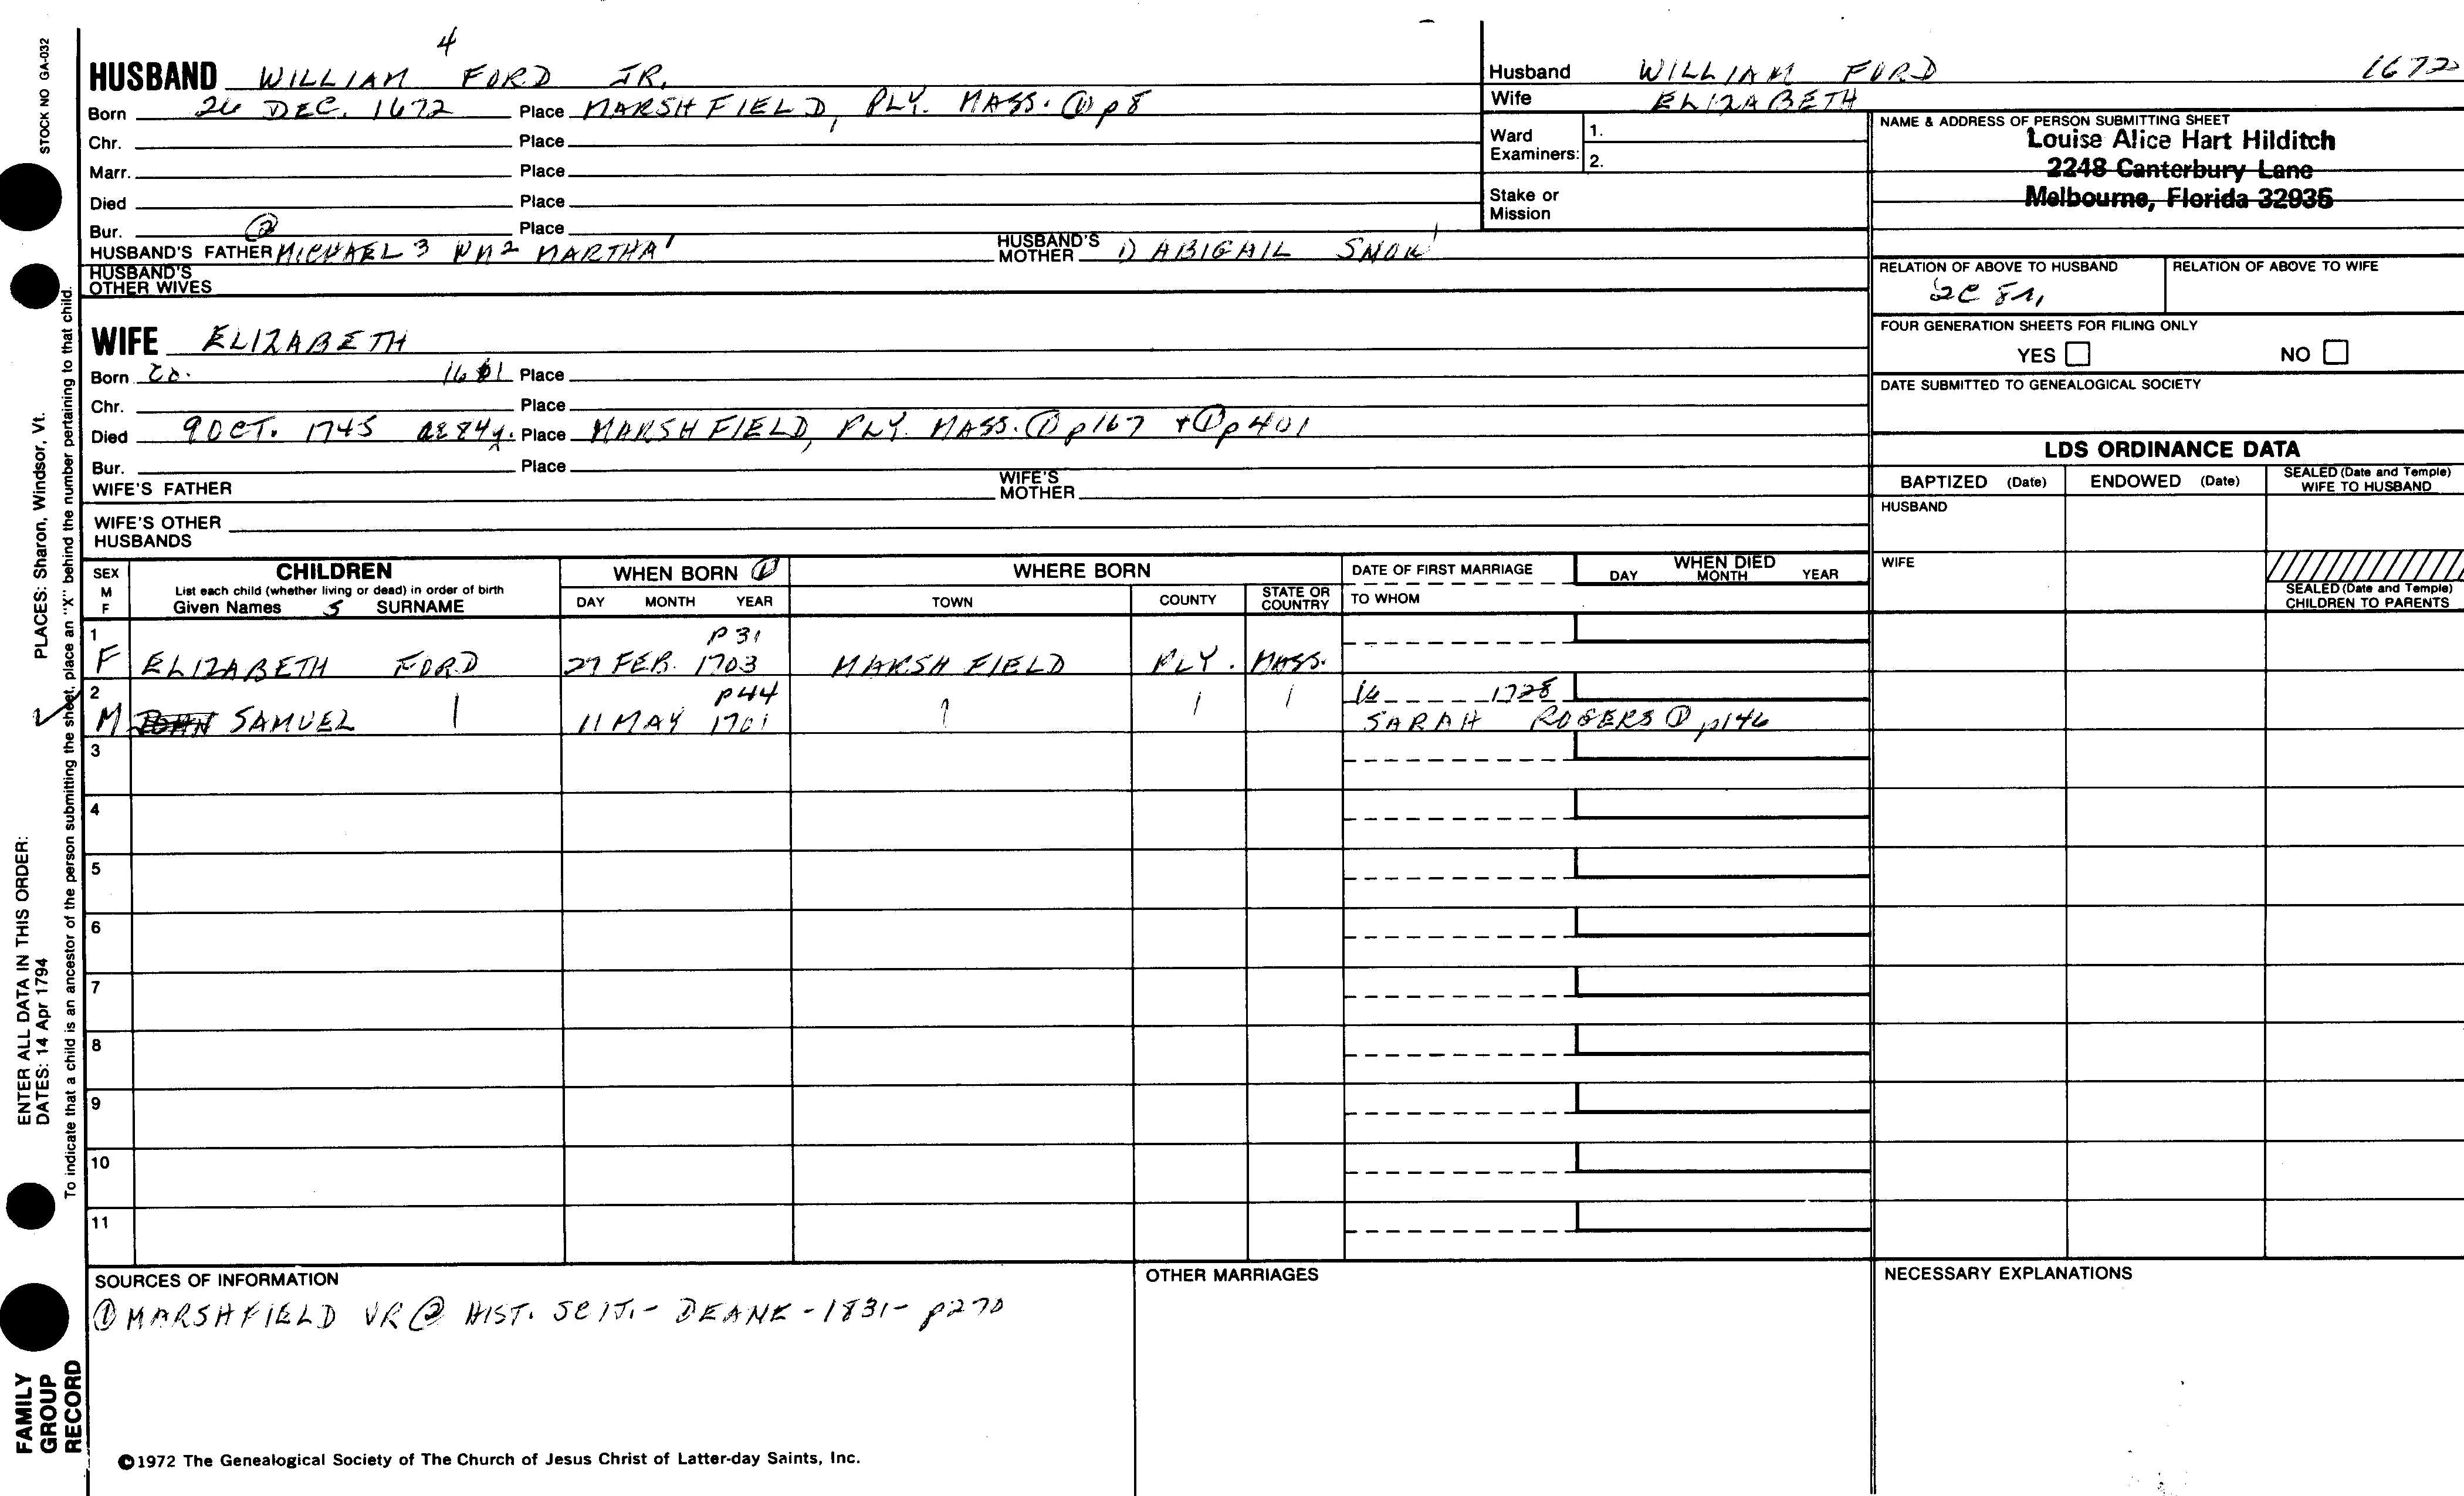 4
HUSBAND WILLIAM FORD JR.
Born 26 DEC. 1672 Place MARSHFIELD, PLY. MASS. ① p8
Chr. Place
Marr. Place
Died Place
Bur. Place
②
HUSBAND'S FATHER MICHAEL 3 WM 2 MARTHA 1 HUSBAND'S MOTHER 1) ABIGAIL SNOW
HUSBAND'S OTHER WIVES
WIFE ELIZABETH
Born Ca. 1661 Place
Chr. Place
Died 9 OCT. 1745 AE 84y. Place MARSHFIELD, PLY. MASS. ① p167 + ① p401
Bur. Place
WIFE'S FATHER WIFE'S MOTHER
WIFE'S OTHER HUSBANDS
Husband WILLIAM FORD 1672
Wife ELIZABETH
Ward Examiners: 1.
2.
Stake or Mission
NAME & ADDRESS OF PERSON SUBMITTING SHEET
Louise Alice Hart Hilditch
2248 Canterbury Lane
Melbourne, Florida 32935
RELATION OF ABOVE TO HUSBAND RELATION OF ABOVE TO WIFE
2C 8r,
FOUR GENERATION SHEETS FOR FILING ONLY
YES NO
DATE SUBMITTED TO GENEALOGICAL SOCIETY
LDS ORDINANCE DATA
BAPTIZED (Date) ENDOWED (Date) SEALED (Date and Temple) WIFE TO HUSBAND
HUSBAND
WIFE
SEALED (Date and Temple) CHILDREN TO PARENTS
SEX M F
CHILDREN
List each child (whether living or dead) in order of birth
Given Names 5 SURNAME
WHEN BORN ①
DAY MONTH YEAR
WHERE BORN
TOWN COUNTY STATE OR COUNTRY
DATE OF FIRST MARRIAGE
TO WHOM
WHEN DIED
DAY MONTH YEAR
1 p31
F ELIZABETH FORD 27 FEB. 1703 MARSHFIELD PLY. MASS.
2 p44 16 1728
M JOHN SAMUEL 11 MAY 1701 SARAH ROGERS ① p146
3
4
5
6
7
8
9
10
11
SOURCES OF INFORMATION
① MARSHFIELD VR ② HIST. SCIT. - DEANE - 1831 - p270
OTHER MARRIAGES
NECESSARY EXPLANATIONS
©1972 The Genealogical Society of The Church of Jesus Christ of Latter-day Saints, Inc.
STOCK NO GA-032
PLACES: Sharon, Windsor, Vt.
ENTER ALL DATA IN THIS ORDER:
DATES: 14 Apr 1794
To indicate that a child is an ancestor of the person submitting the sheet, place an "X" behind the number pertaining to that child.
FAMILY
GROUP
RECORD